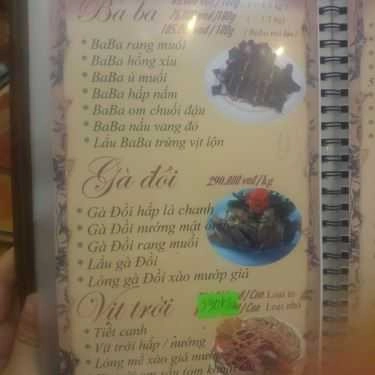 Ba ba
* BaBa rang muối
* BaBa hồng xíu
* BaBa ủ muối
* BaBa hấp nấm
* BaBa om chuối đậu
* BaBa nấu vang đỏ
* Lẩu BaBa trứng vịt lộn
Gà đồi 290.000 vnđ/kg
* Gà Đồi hấp lá chanh
* Gà Đồi nướng mật ong
* Gà Đồi rang muối
* Lẩu gà Đồi
* Lòng gà Đồi xào mướp giá
Vịt trời đ/Con Loại to
đ/Con Loại nhỏ
* Tiết canh
* Vịt trời hấp / nướng
* Lòng mề xào giá